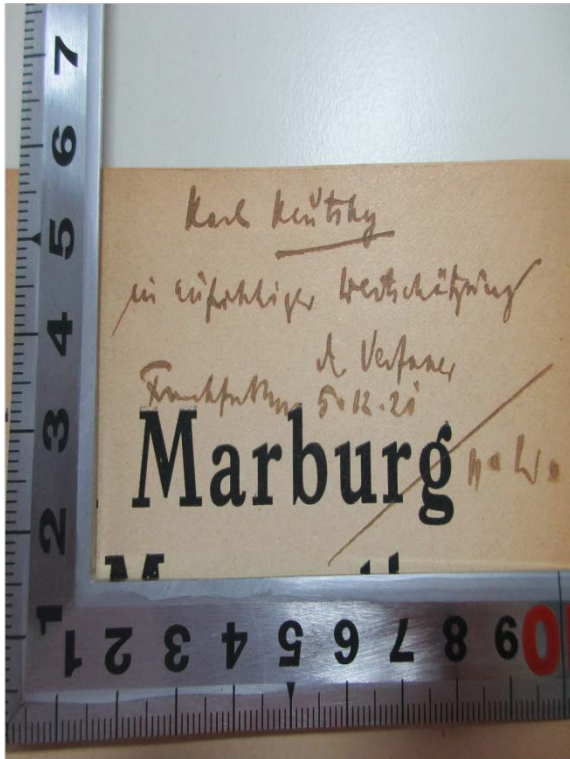 Karl Kautsky
in aufrichtiger Wertschätzung
d. Verfasser
Frankfurt 5.12.21
Marburg
7
6
5
4
3
2
1
1 2 3 4 5 6 7 8 9 10